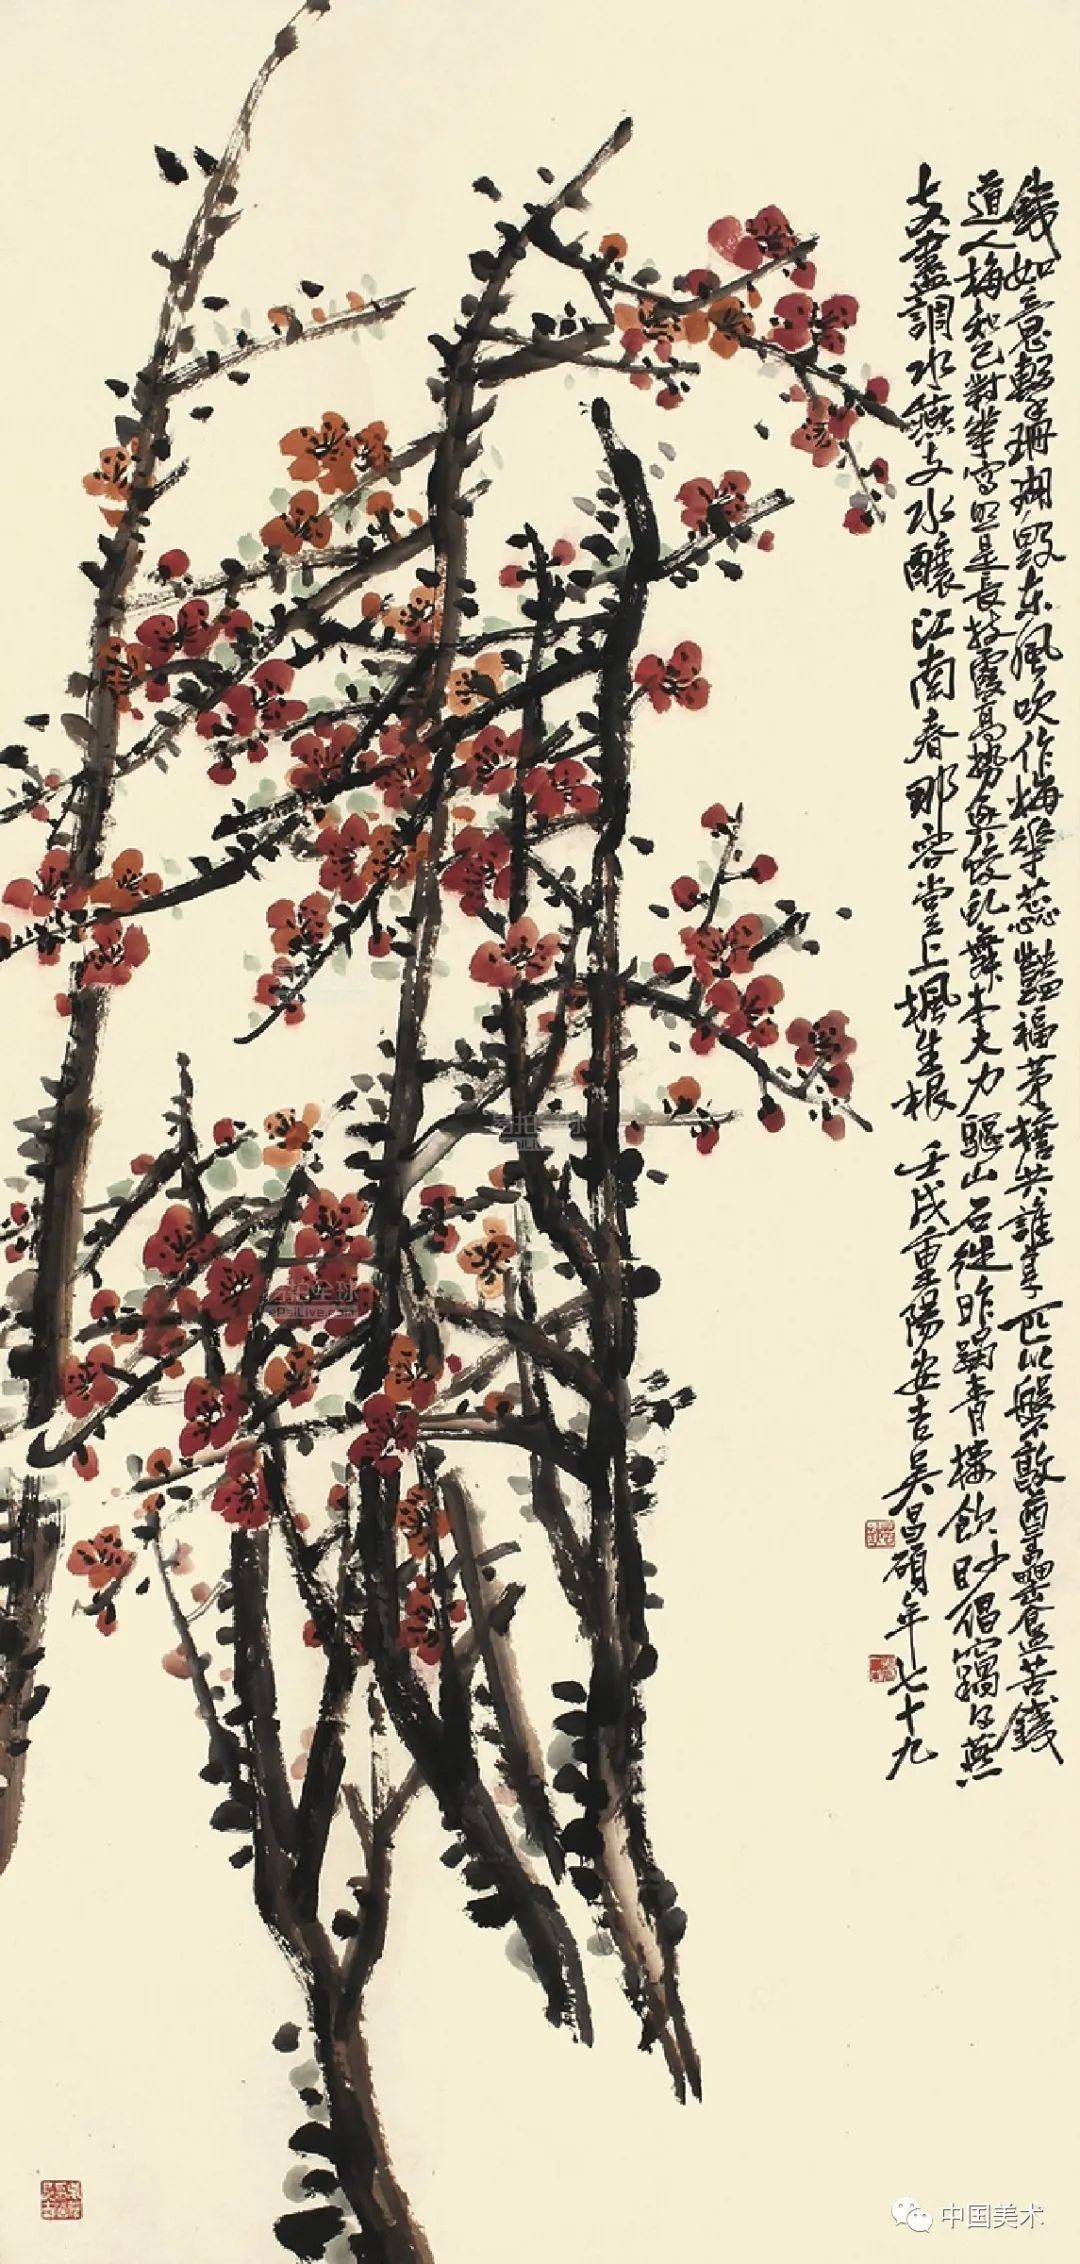 鐵如意擊珊瑚毀東風吹作梅華蕊豔福茅檐共誰享匹以槃敦尊罍簋苦鐵
道人梅知己對華寫照是長技霞高勢逐蛟虬舞本大力驅山石徙昨蹋青樓飲眇倡竊得燕
支盡調水燕支水釀江南春那容堂上楓生根 壬戌重陽安吉吳昌碩年七十九
易拍全球
epaiLive.com
中国美术